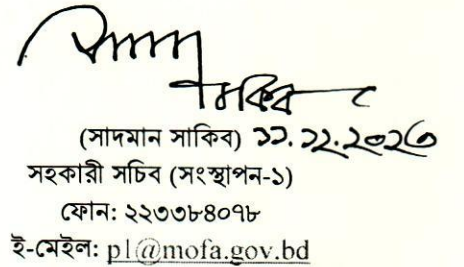 (সাদমান সাকিব) ১১.১২.২০২৩
সহকারী সচিব (সংস্থাপন-১)
ফোন: ২২৩৩৮৪০৭৮
ই-মেইল: p1@mofa.gov.bd